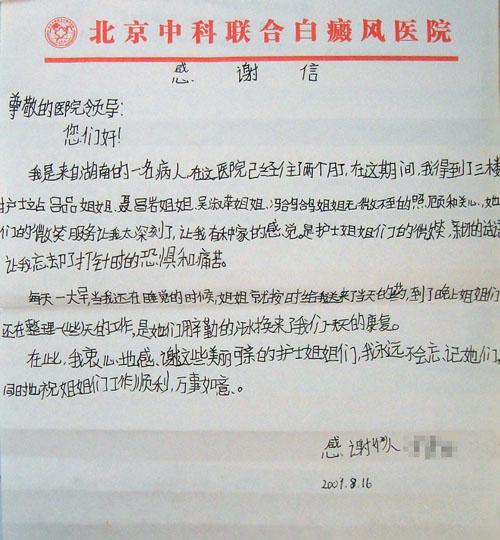 北京中科联合白癜风医院
感 谢 信
尊敬的医院领导:
您们好!
我是来自湖南的一名病人在这医院已经住了两个月了,在这期间,我得到了三楼
护士站 姐姐、聂 岩姐姐、吴淑荣姐姐、冯 姐姐无微不至的照顾和关心,她
们的微笑服务让我太深刻了,让我有种家的感觉。是护士姐姐们的微笑、亲切的话语
让我忘却了打针时的恐惧和痛苦。
每天一大早,当我还在睡觉的时候,姐姐就按时给我送来了当天的药,到了晚上姐姐们
还在整理一些天的工作,是她们用辛勤的汗水换来了我们一天天的康复。
在此,我衷心地感谢这些美丽可亲的护士姐姐们,我永远不会忘记她们,
同时也祝姐姐们工作顺利,万事如意。
感谢人
2009.8.16